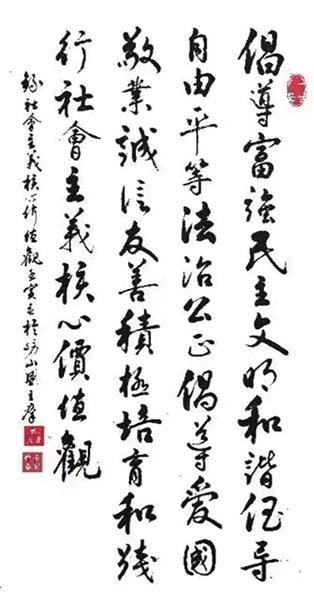 倡導富強民主文明和諧倡导
自由平等法治公正倡导愛國
敬業誠信友善積極培育和踐
行社會主義核心價值觀
錄社會主義核心价值觀